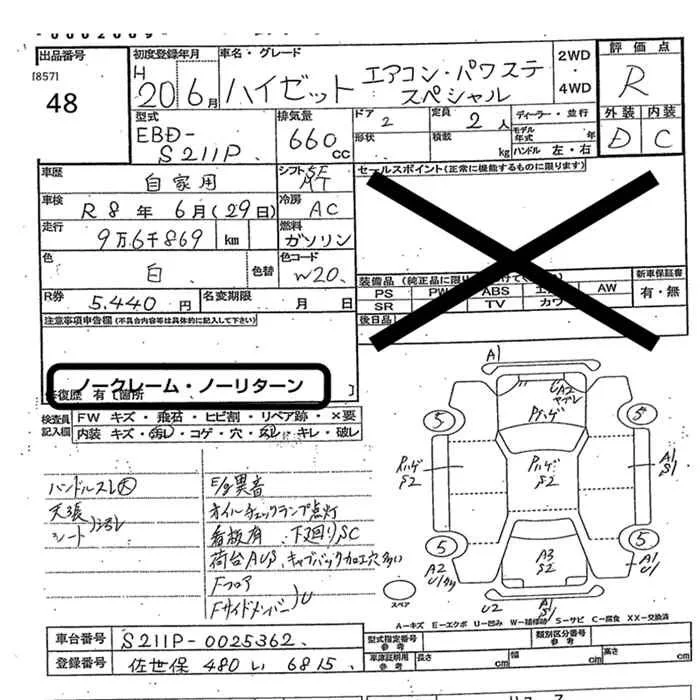 出品番号
[857]
48
初度登録年月
H 20 6月
車名・グレード
ハイゼット エアコン・パワステ
スペシャル
2WD
・
4WD
評価点
R
外装 内装
D C
型式
EBD-
S211P
排気量
660cc
ドア
2
形状
定員
2人
積載
kg
ディーラー・並行
モデル年式 年
ハンドル 左・右
車歴
自家用
シフト
5F
AT
車検
R8年 6月(29日)
冷房
AC
走行
9万6千869 km
燃料
ガソリン
色
白
色替
色コード
W20
R券
5.440円
名変期限
月 日
セールスポイント(正常に機能するものに限ります)
PS PW ABS AW
SR TV
後日品
新車保証書
有・無
注意事項申告欄(不具合内容等は具体的に記入して下さい)
ノークレーム・ノーリターン
検査員
記入欄
FW キズ・飛石・ヒビ割・リペア跡・×要
内装 キズ・汚レ・コゲ・穴・キレ・破レ
ハンドルスレ大
天張
シート
汚レ
E/g異音
オイルチェックランプ点灯
看板有 下廻りSC
荷台AUS、キャブバック加工穴多い
Fフロア
Fサイドメンバー
U
A1
UA2
ヤブレ
Pハゲ
5
5
Pハゲ
S2
Pハゲ
S2
A1
S1
5
5
A3
S2
A2
A1
U1
U2
A1
S1
スペア
A-キズ E-エクボ U-凹み W-補修跡 S-サビ C-腐食 XX-交換済
車台番号
S211P-0025362
型式指定番号
参考
類別区分番号
参考
登録番号
佐世保 480 い 6815
車庫証明用
参考
長さ cm
幅 cm
高さ cm